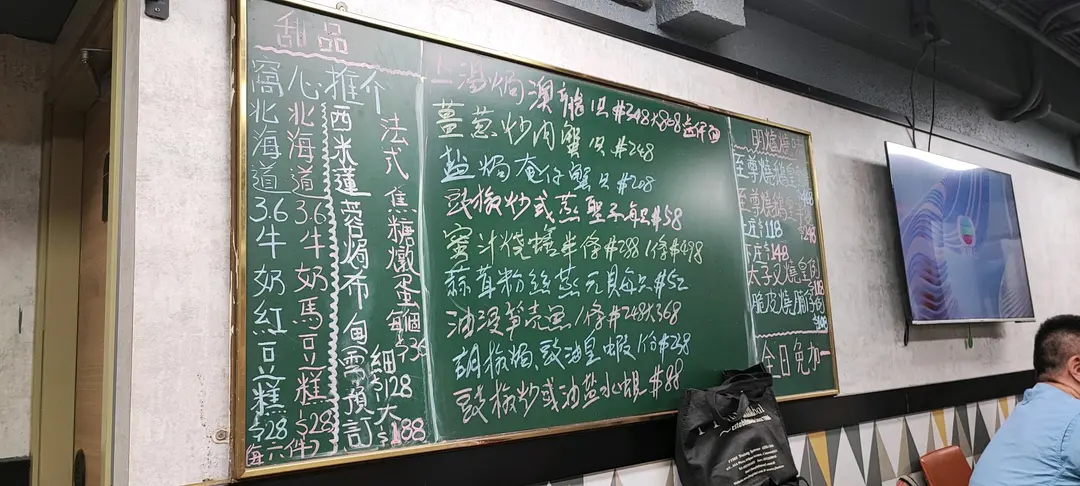 甜品
窩心推介
北海道3.6牛奶紅豆糕$28
北海道3.6牛奶馬豆糕$28
每六件
西米蓮蓉焗布甸需預訂
細$128
大$188
法式焦糖燉蛋每個$36
上湯焗澳
薑蔥炒肉蟹只#248
盐焗奄仔蟹只#208
豉椒炒或蒸聖子每只#58
蜜汁燒鳝半條#288 1條#498
蒜茸粉絲蒸元貝每只#52
油浸笋壳魚1條#248大368
胡椒焗豉油皇蝦1份#238
豉椒炒或油盐水蜆#88
明爐燒
至尊燒鵝皇
至尊燒鵝皇
$118
$148
太子叉燒皇
脆皮燒腩
全日免加一